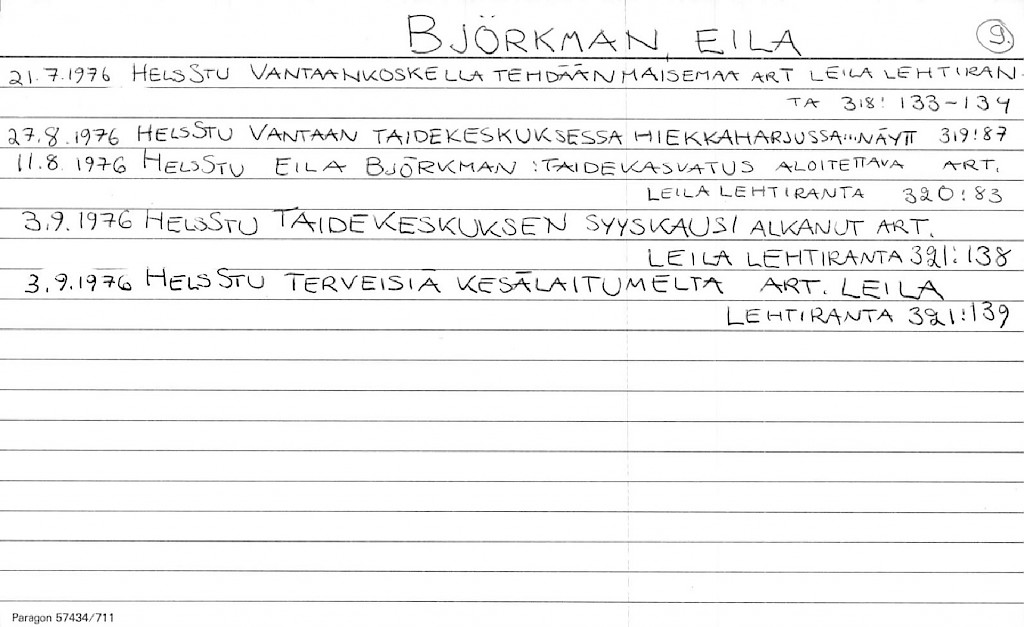 BJÖRKMAN, EILA 9.
21.7.1976 HELSSTU VANTAANKOSKELLA TEHDÄÄN MAISEMAA ART LEILA LEHTIRAN-
TA 318: 133-134
27.8.1976 HELSSTU VANTAAN TAIDEKESKUKSESSA HIEKKAHARJUSSA...NÄYTT 319:87
11.8.1976 HELSSTU EILA BJÖRKMAN: TAIDEKASVATUS ALOITETTAVA ART.
LEILA LEHTIRANTA 320:83
3.9.1976 HELSSTU TAIDEKESKUKSEN SYYSKAUSI ALKANUT ART.
LEILA LEHTIRANTA 321:138
3.9.1976 HELSSTU TERVEISIÄ KESÄLAITUMELTA ART. LEILA
LEHTIRANTA 321:139
Paragon 57434/711